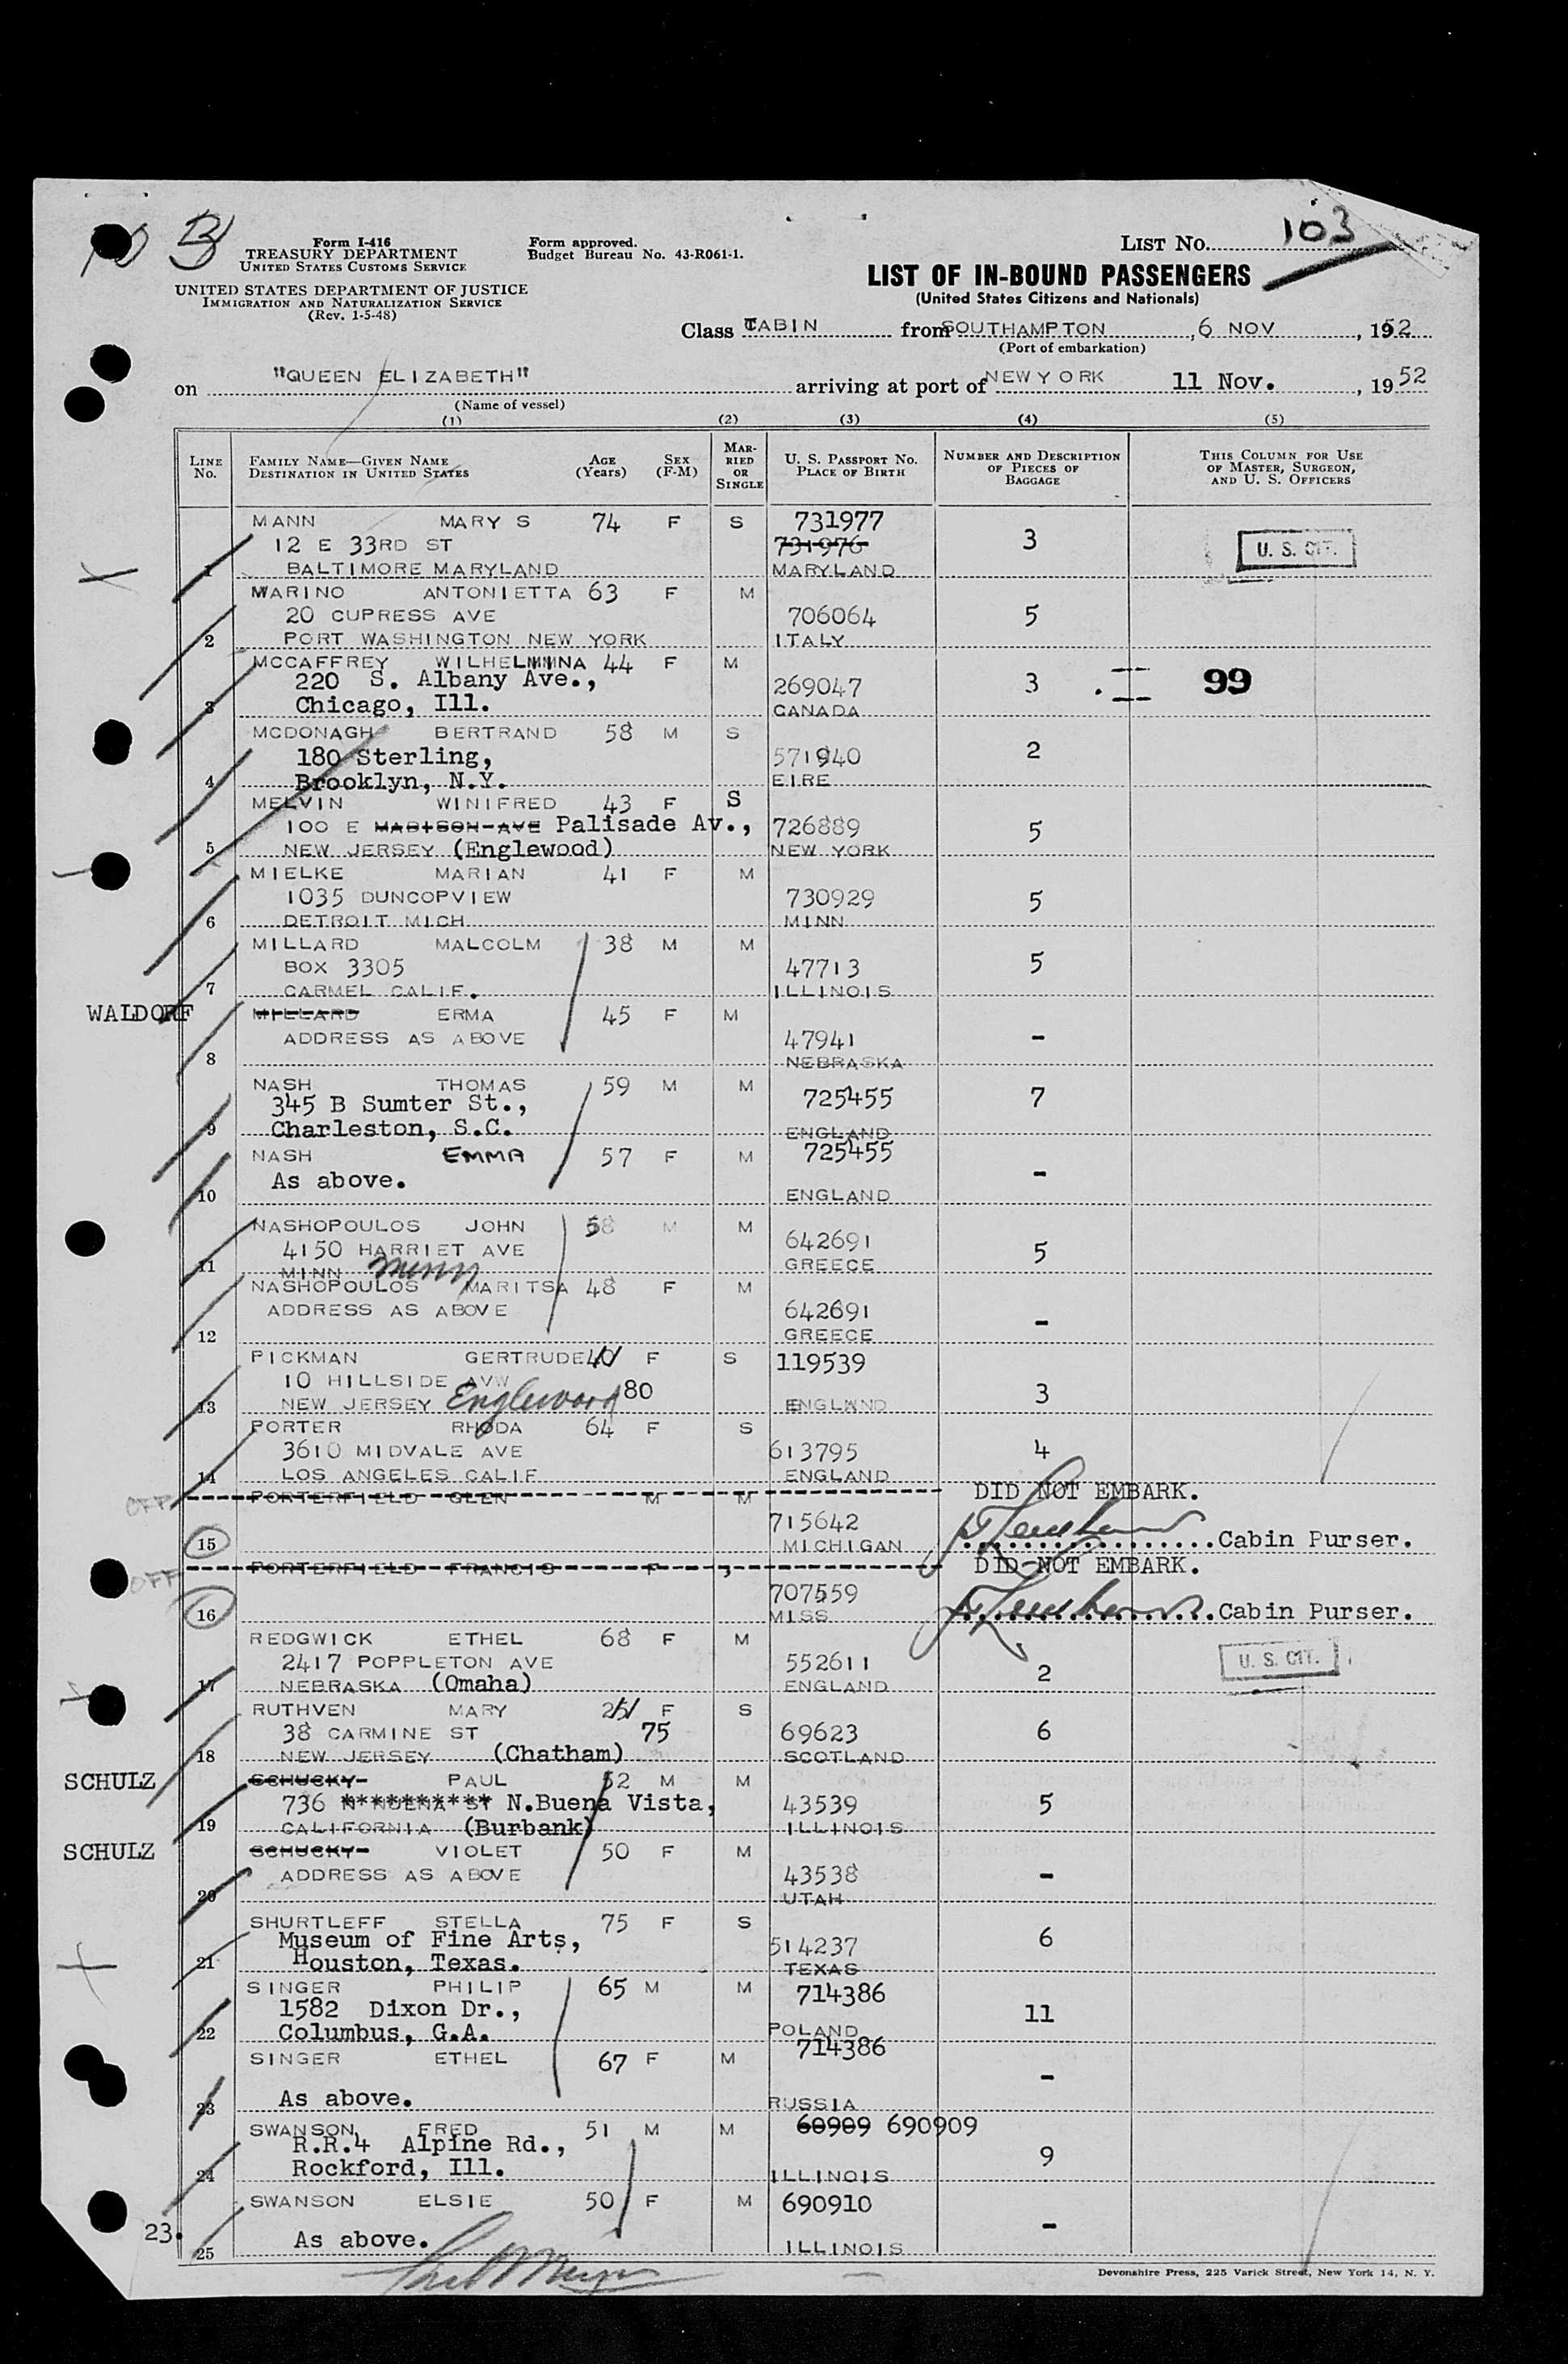 103
B
Form I-416
TREASURY DEPARTMENT
UNITED STATES CUSTOMS SERVICE
UNITED STATES DEPARTMENT OF JUSTICE
IMMIGRATION AND NATURALIZATION SERVICE
(Rev. 1-5-48)
Form approved.
Budget Bureau No. 43-R061-1.
LIST NO.
LIST OF IN-BOUND PASSENGERS
(United States Citizens and Nationals)
Class CABIN from SOUTHAMPTON, 6 NOV, 1952
(Port of embarkation)
on "QUEEN ELIZABETH" arriving at port of NEW YORK 11 Nov., 1952
(Name of vessel)
(1) (2) (3) (4) (5)
LINE NO. FAMILY NAME—GIVEN NAME DESTINATION IN UNITED STATES AGE (Years) SEX (F-M) MARRIED OR SINGLE U. S. PASSPORT NO. PLACE OF BIRTH NUMBER AND DESCRIPTION OF PIECES OF BAGGAGE THIS COLUMN FOR USE OF MASTER, SURGEON, AND U. S. OFFICERS
MANN MARY S 74 F S 731977
12 E 33RD ST 731976 3 U. S. CIT.
1 BALTIMORE MARYLAND MARYLAND
MARINO ANTONIETTA 63 F M
20 CUPRESS AVE 706064 5
2 PORT WASHINGTON NEW YORK ITALY
MCCAFFREY WILHELMINA 44 F M
220 S. Albany Ave., 269047 3 99
3 Chicago, Ill. CANADA
MCDONAGH BERTRAND 58 M S
180 Sterling, 571940 2
4 Brooklyn, N.Y. EIRE
MELVIN WINIFRED 43 F S
100 E MADISON AVE Palisade Av., 726889 5
5 NEW JERSEY (Englewood) NEW YORK
MIELKE MARIAN 41 F M
1035 DUNCOPVIEW 730929 5
6 DETROIT MICH MINN
MILLARD MALCOLM 38 M M
BOX 3305 47713 5
7 CARMEL CALIF. ILLINOIS
WALDORF MILLARD ERMA 45 F M
ADDRESS AS ABOVE 47941 -
8 NEBRASKA
NASH THOMAS 59 M M
345 B Sumter St., 725455 7
9 Charleston, S.C. ENGLAND
NASH EMMA 57 F M 725455
As above. -
10 ENGLAND
NASHOPOULOS JOHN 58 M M
4150 HARRIET AVE 642691 5
11 MINN Minn GREECE
NASHOPOULOS MARITSA 48 F M
ADDRESS AS ABOVE 642691 -
12 GREECE
PICKMAN GERTRUDE 40 F S 119539
10 HILLSIDE AVW 80 3
13 NEW JERSEY Englewood ENGLAND
PORTER RHODA 64 F S
3610 MIDVALE AVE 613795 4
14 LOS ANGELES CALIF ENGLAND
OFF PORTERFIELD GLEN M M DID NOT EMBARK.
715642
15 MICHIGAN Cabin Purser.
OFF PORTERFIELD FRANCIS F DID NOT EMBARK.
707559
16 MISS Cabin Purser.
REDGWICK ETHEL 68 F M
2417 POPPLETON AVE 552611 2 U. S. CIT.
17 NEBRASKA (Omaha) ENGLAND
RUTHVEN MARY 25 F S
38 CARMINE ST 75 69623 6
18 NEW JERSEY (Chatham) SCOTLAND
SCHULZ SCHUCKY PAUL 52 M M
736 N.Buena Vista, 43539 5
19 CALIFORNIA (Burbank) ILLINOIS
SCHULZ SCHUCKY VIOLET 50 F M
ADDRESS AS ABOVE 43538 -
20 UTAH
SHURTLEFF STELLA 75 F S
Museum of Fine Arts, 514237 6
21 Houston, Texas. TEXAS
SINGER PHILIP 65 M M 714386
1582 Dixon Dr., 11
22 Columbus, G.A. POLAND
SINGER ETHEL 67 F M 714386
-
23 As above. RUSSIA
SWANSON FRED 51 M M 60909 690909
R.R.4 Alpine Rd., 9
24 Rockford, Ill. ILLINOIS
SWANSON ELSIE 50 F M 690910
23. As above. -
25 ILLINOIS
Devonshire Press, 225 Varick Street, New York 14, N. Y.